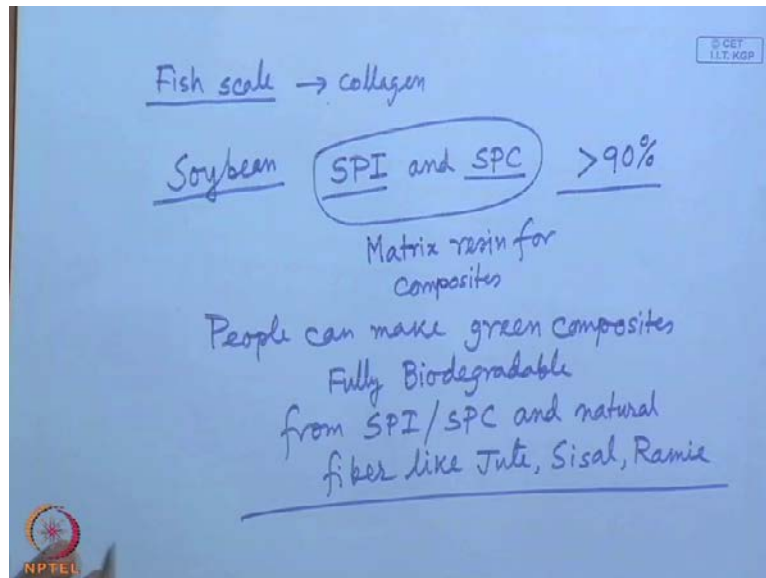 © CET
I.I.T. KGP
Fish scale → collagen
Soybean SPI and SPC >90%
Matrix resin for
composites
People can make green composites
Fully Biodegradable
from SPI/SPC and natural
fiber like Jute, Sisal, Ramie
NPTEL